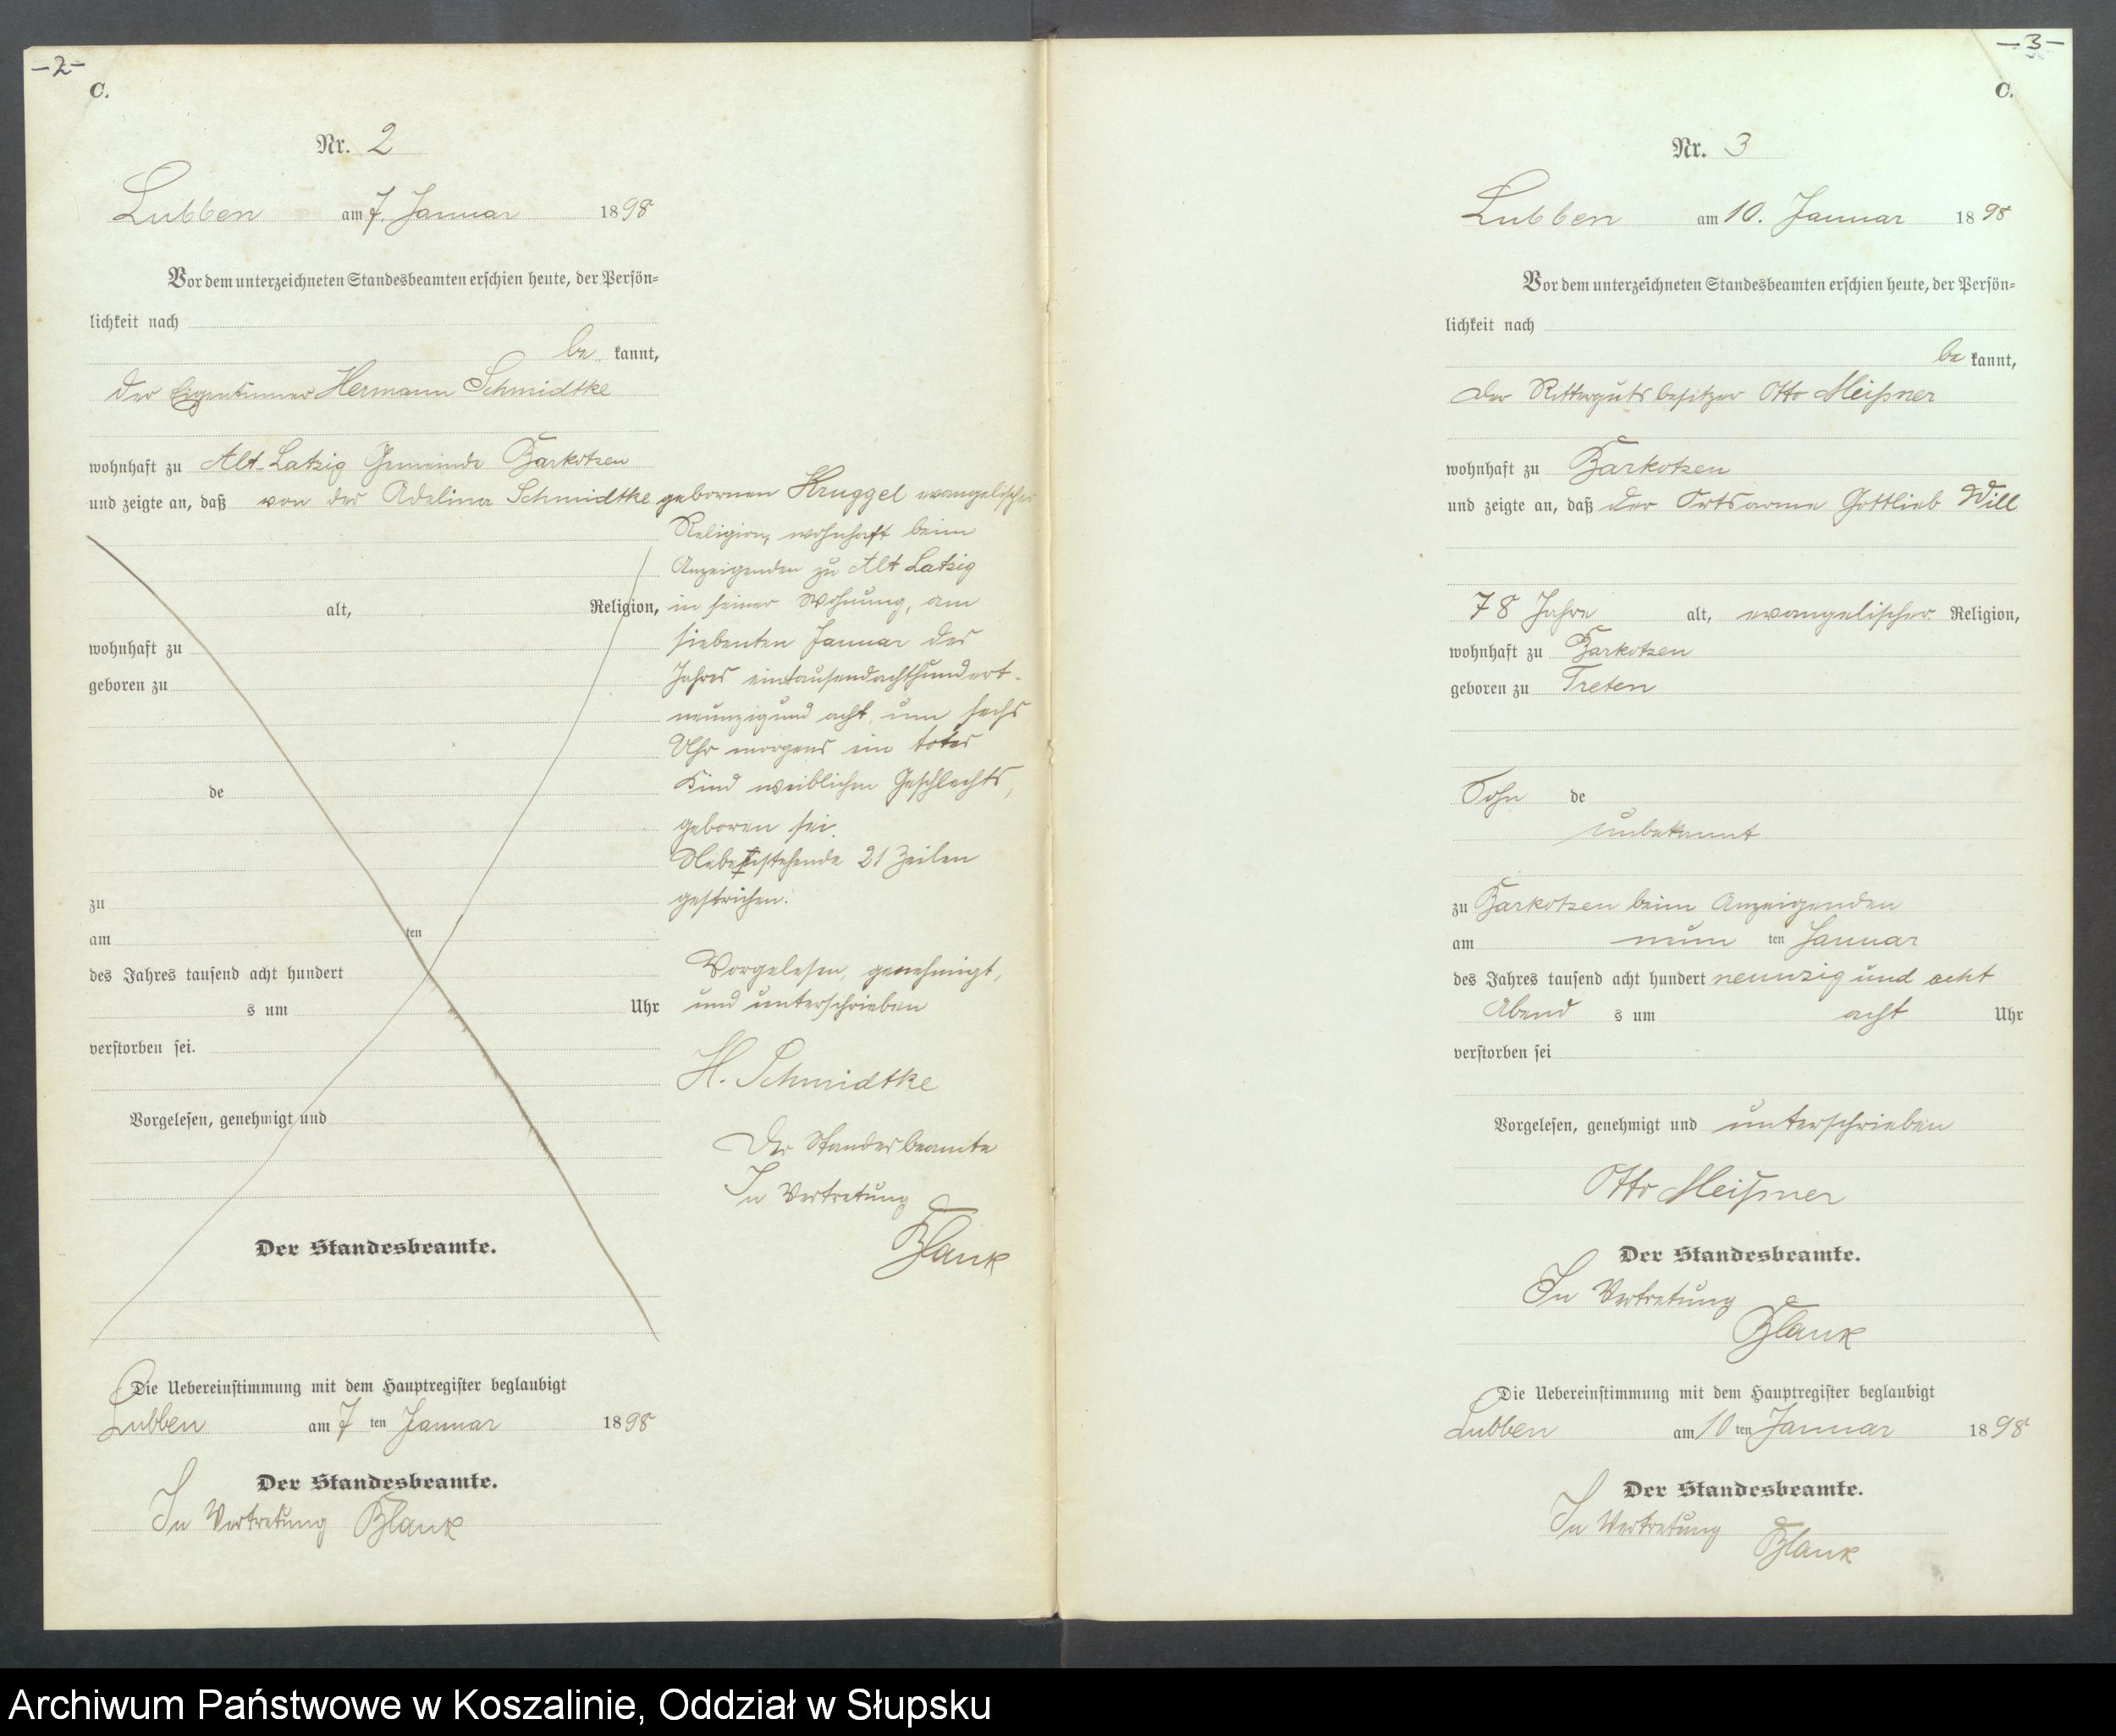 -2-
C.
Nr. 2
Lubben am 7. Januar 1898
Vor dem unterzeichneten Standesbeamten erschien heute, der Persön-
lichkeit nach
be kannt,
der Eigentümer Hermann Schmidtke
wohnhaft zu Alt-Latzig Gemeinde Barkotzen
und zeigte an, daß von der Adeline Schmidtke gebornen Kruggel evangelischer
Religion, wohnhaft beim
Anzeigenden zu Alt Latzig
alt, Religion, in seiner Wohnung, am
wohnhaft zu siebenten Januar des
geboren zu Jahres eintausendachthundert-
neunzig und acht, um sechs
Uhr morgens ein totes
de Kind weiblichen Geschlechts,
geboren sei.
Nebenstehende 21 Zeilen
zu gestrichen.
am ten
des Jahres tausend acht hundert Vorgelesen, genehmigt,
s um Uhr und unterschrieben
verstorben sei.
H. Schmidtke
Vorgelesen, genehmigt und
Der Standesbeamte
In Vertretung
Blank
Der Standesbeamte.
Die Uebereinstimmung mit dem Hauptregister beglaubigt
Lubben am 7 ten Januar 1898
Der Standesbeamte.
In Vertretung Blank
-3-
C.
Nr. 3
Lubben am 10. Januar 1898
Vor dem unterzeichneten Standesbeamten erschien heute, der Persön-
lichkeit nach
be kannt,
der Rittergutsbesitzer Otto Meißner
wohnhaft zu Barkotzen
und zeigte an, daß der Ortsarme Gottlieb Will
78 Jahre alt, evangelischer Religion,
wohnhaft zu Barkotzen
geboren zu Treten
Sohn de
unbekannt
zu Barkotzen beim Anzeigenden
am neun ten Januar
des Jahres tausend acht hundert neunzig und acht
Abend s um acht Uhr
verstorben sei
Vorgelesen, genehmigt und unterschrieben
Otto Meißner
Der Standesbeamte.
In Vertretung
Blank
Die Uebereinstimmung mit dem Hauptregister beglaubigt
Lubben am 10 ten Januar 1898
Der Standesbeamte.
In Vertretung
Blank
Archiwum Państwowe w Koszalinie, Oddział w Słupsku